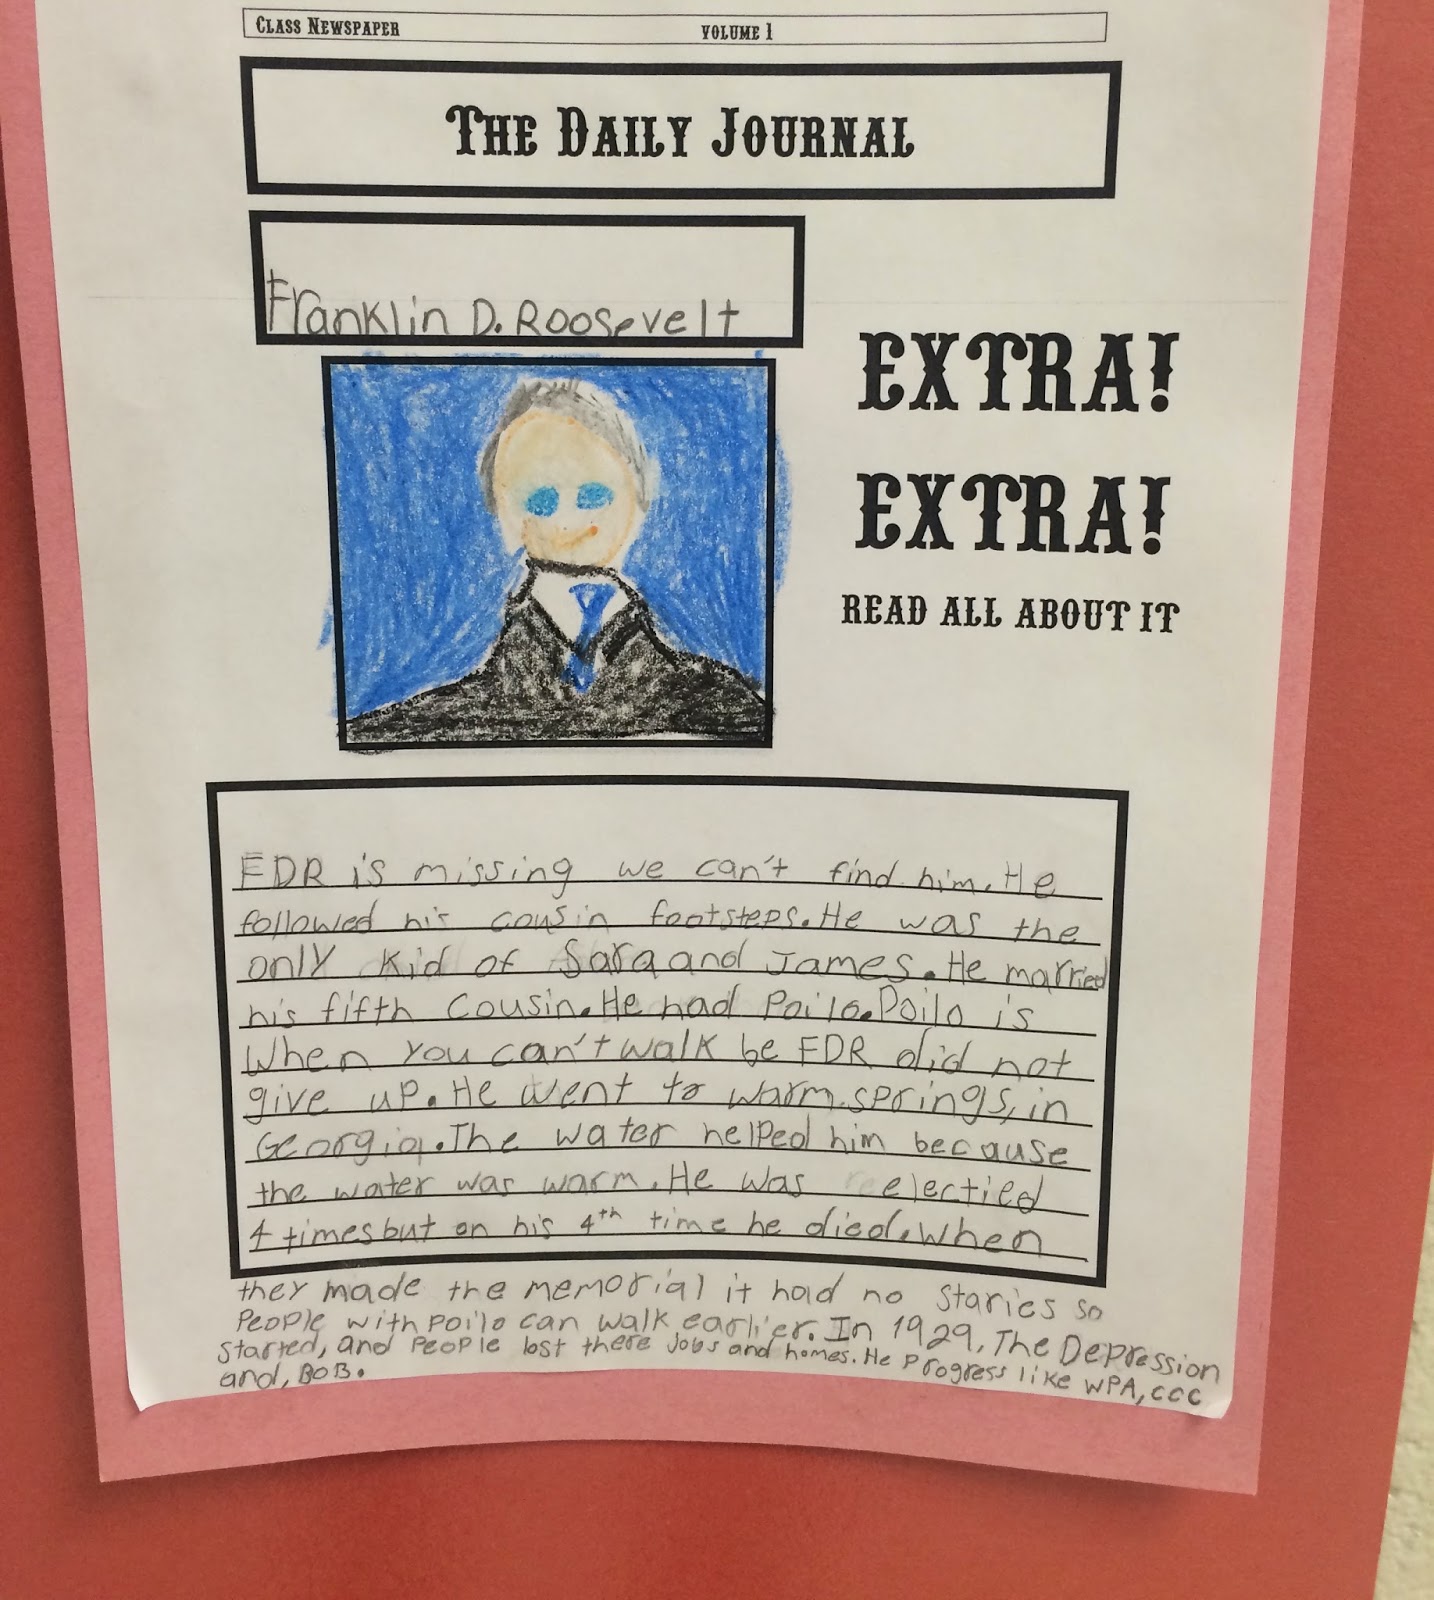 CLASS NEWSPAPER VOLUME 1
THE DAILY JOURNAL
Franklin D. Roosevelt
EXTRA!
EXTRA!
READ ALL ABOUT IT
FDR is missing we can't find him. He
followed his cousin footsteps. He was the
only kid of Sara and James. He married
his fifth cousin. He had Poilo. Poilo is
When you can't walk be FDR did not
give up. He went to warm springs, in
Georgia. The water helped him because
the water was warm. He was electied
4 times but on his 4th time he died. When
they made the memorial it had no staries so
People with poilo can walk earlier. In 1929, The Depression
started, and People lost there Jobs and homes. He Progress like WPA, CCC
and, BOB.